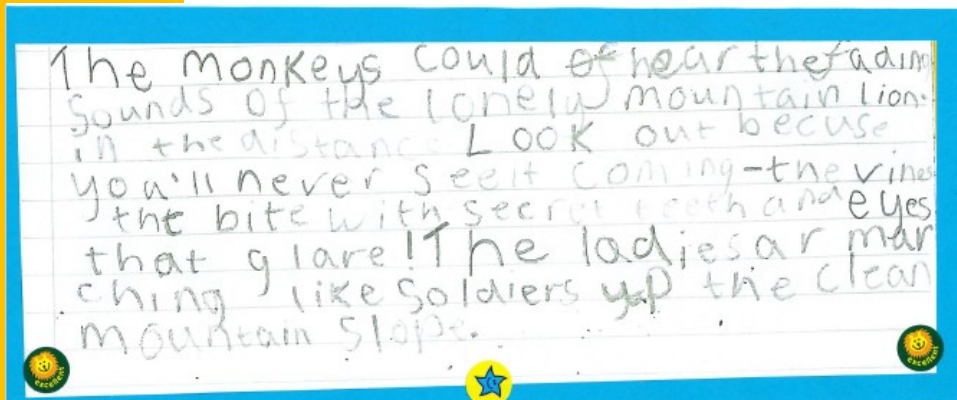 The Monkeys could of hear the fading
Sounds of the lonely mountain lion.
in the distance Look out becuse
you'll never see it coming-the vines
tht bite with secret teeth and eyes
that glare! The ladies ar mar
ching like Soldiers up the clean
mountain slope.
excellent
excellent